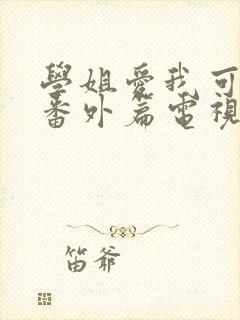 學姐愛我可
番外篇電視
笛爺